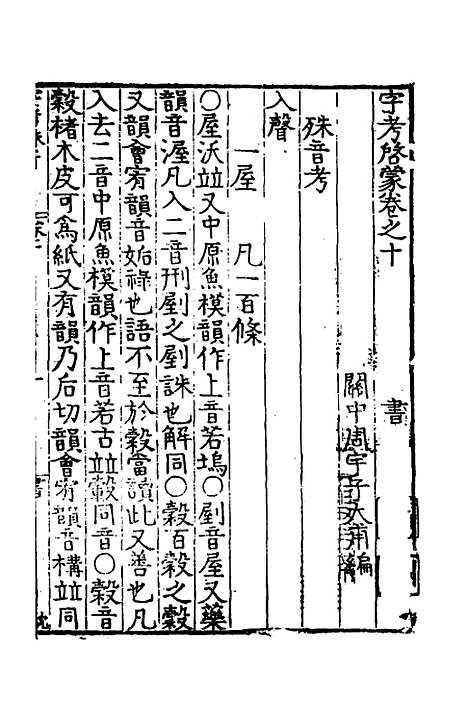 字考啓蒙卷之十
書
關中周宇子大甫編
殊音考
入聲
一屋 凡一百條
○屋沃竝又中原魚模韻作上音若塢○剭音屋又藥
韻音渥凡入二音刑剭之剭誅也解同○穀百穀之穀
又韻會宥韻音姤祿也語不至於穀當讀此又善也凡
入去二音中原魚模韻作上音若古竝轂同音○榖音
穀楮木皮可爲紙又有韻乃后切韻會宥韻音構竝同